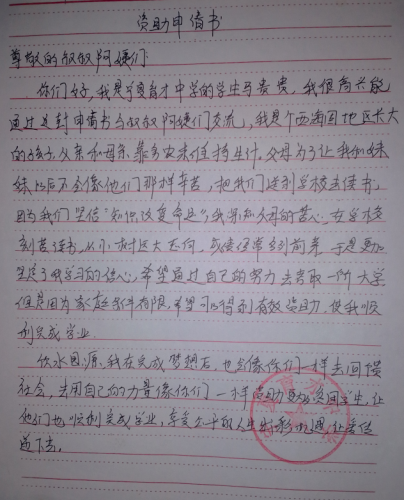 资助申请书
尊敬的叔叔阿姨们:
你们好,我是宁夏育才中学的学生马贵贵,我很高兴能
通过这封申请书与叔叔阿姨们交流,我是个西海固地区长大
的孩子,父亲和母亲靠务农来维持生计,父母为了让我和妹
妹以后不会像他们那样辛苦,把我们送到学校去读书,
因为我们坚信“知识改变命运”,我深知父母的苦心,在学校
刻苦读书,从小村庄走向,成绩保常名列前茅,于是更加
坚定了我学习的信心,希望通过自己的努力去考取一所大学
但是因为家庭条件有限,希望可以得到有效资助,使我顺
利完成学业.
饮水思源,我在完成梦想后,也会像你们一样去回馈
社会,去用自己的力量像你们一样资助更多贫困学生,让
他们也顺利完成学业,享受人生,让爱传
递下去.